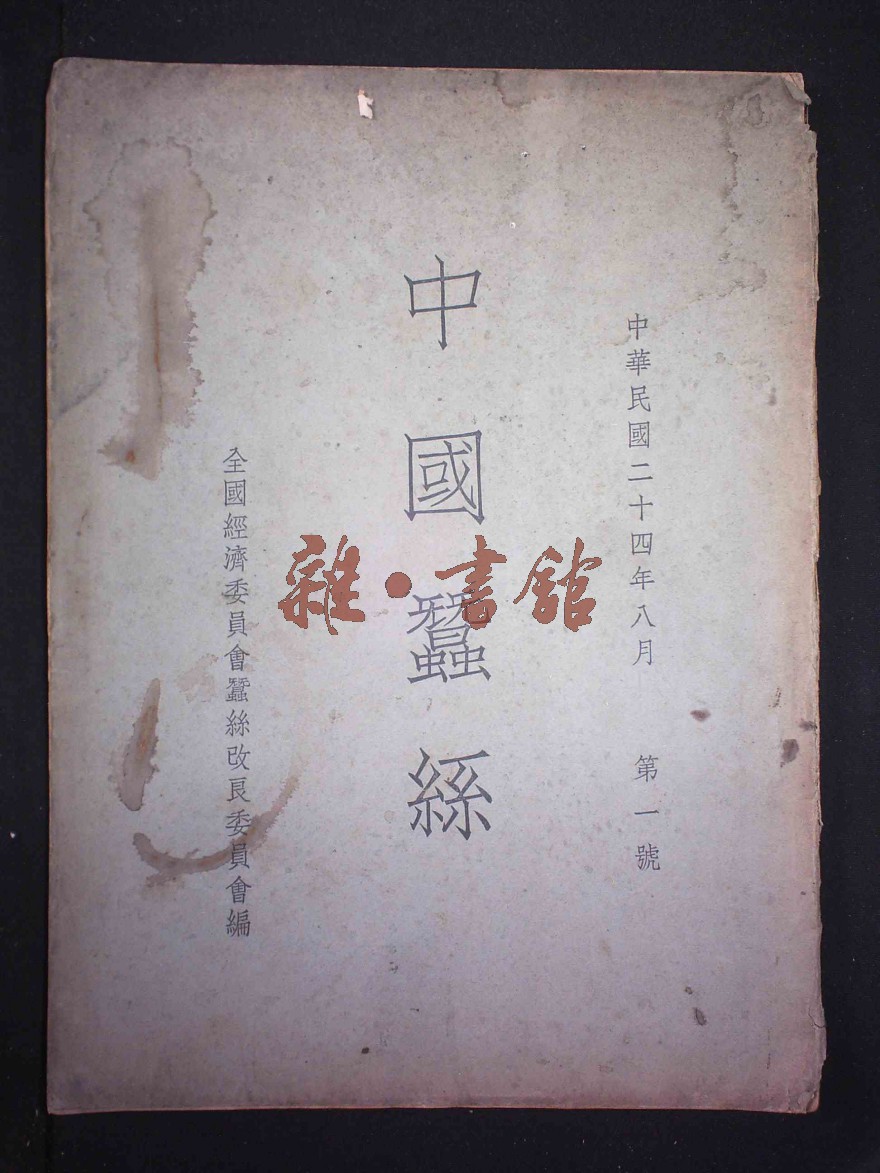 中華民國二十四年八月　第一號
中國蠶絲
全國經濟委員會蠶絲改良委員會編
雜·書館